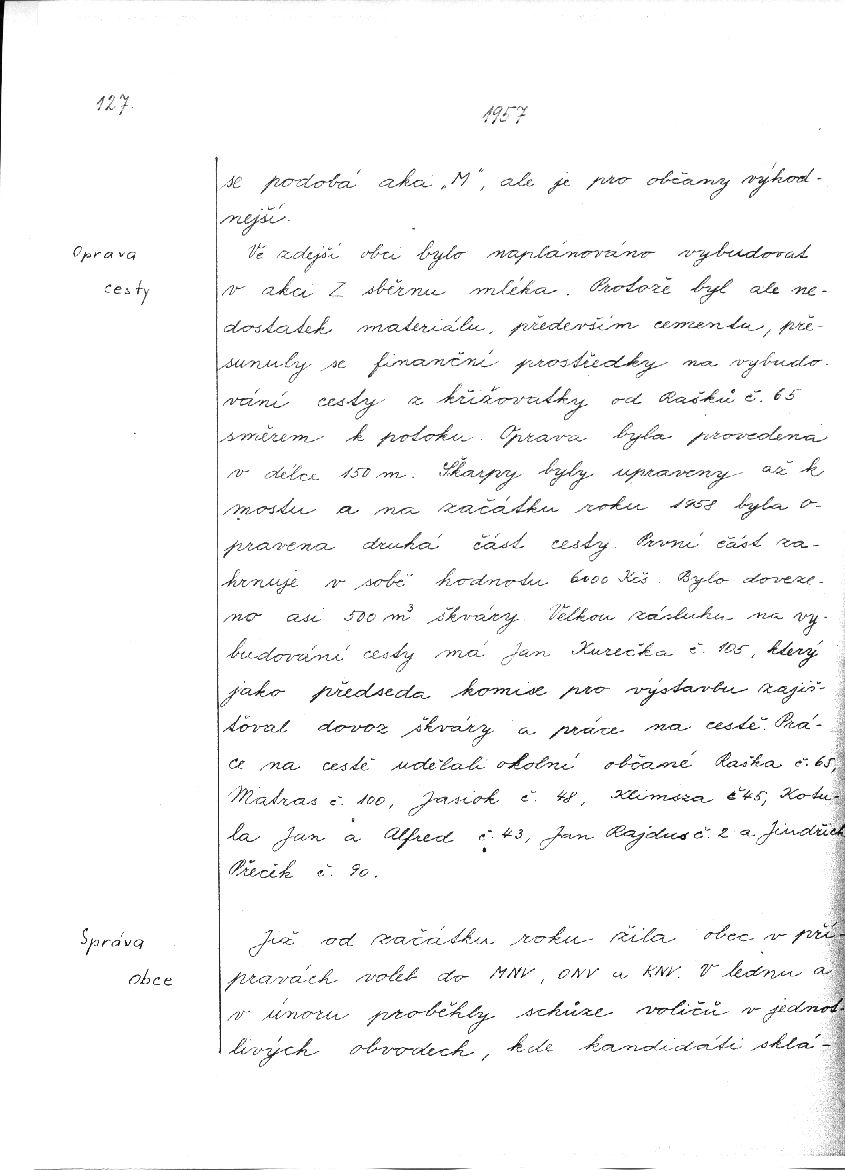 127.
1957
se podobá aka „M", ale je pro občany výhod-
nější.
Oprava
cesty
Ve zdejší obci bylo naplánováno vybudovat
v akci Z sběrnu mléka. Protože byl ale ne-
dostatek materiálu, především cementu, pře-
sunuly se finanční prostředky na vybudo-
vání cesty z křižovatky od Rašků č. 65
směrem k potoku. Oprava byla provedena
v délce 150 m. Škarpy byly upraveny až k
mostu a na začátku roku 1958 byla o-
pravena druhá část cesty. První část za-
hrnuje v sobě hodnotu 6000 Kčs. Bylo doveze-
no asi 500 m³ škváry. Velkou zásluhu na vy-
budování cesty má Jan Kurečka č. 105, který
jako předseda komise pro výstavbu zajiš-
ťoval dovoz škváry a práce na cestě. Prá-
ce na cestě udělali okolní občané Raška č. 65,
Matras č. 100, Jasiok č. 48, Klimsza č 45, Kotu-
la Jan a Alfred č. 43, Jan Rajdus č. 2 a Jindřich
Přečik č. 90.
Správa
obce
Již od začátku roku žila obec v pří-
pravách voleb do MNV, ONV a KNV. V lednu a
v únoru proběhly schůze voličů v jednot-
livých obvodech, kde kandidáti sklá-